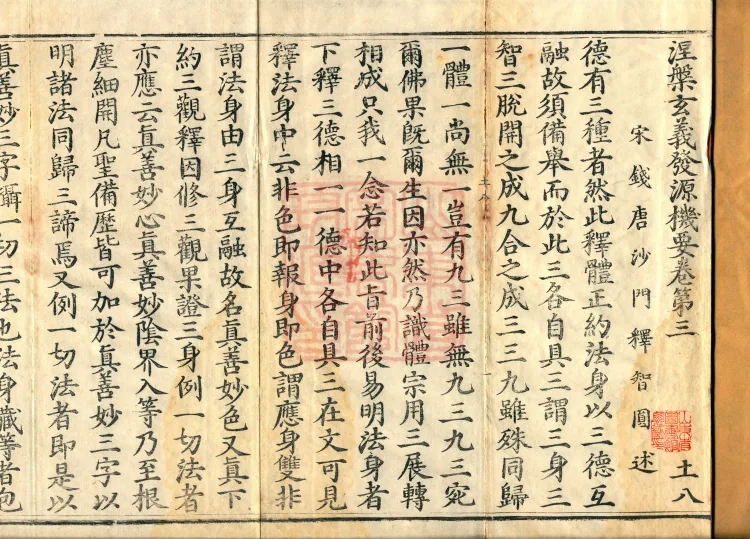 涅槃玄義發源機要卷第三
土八
宋錢唐沙門釋智圓述
德有三種者然此釋體正約法身以三德互
融故須備舉而於此三各自具三謂三身三
智三脫開之成九合之成三三九雖殊同歸
一體一尚無一豈有九三雖無九三九三宛
爾佛果既爾生因亦然乃識體宗用三展轉
相成只我一念若知此旨前後易明法身者
下釋三德相一一德中各自具三在文可見
釋法身中云非色即報身即色謂應身雙非
謂法身由三身互融故名真善妙色又真下
約三觀釋因修三觀果證三身例一切法者
亦應云真善妙心真善妙陰界入等乃至根
塵細開凡聖備歷皆可加於真善妙三字以
明諸法同歸三諦焉又例一切法者即是以
真善妙三字攝一切三法也法身藏等者包